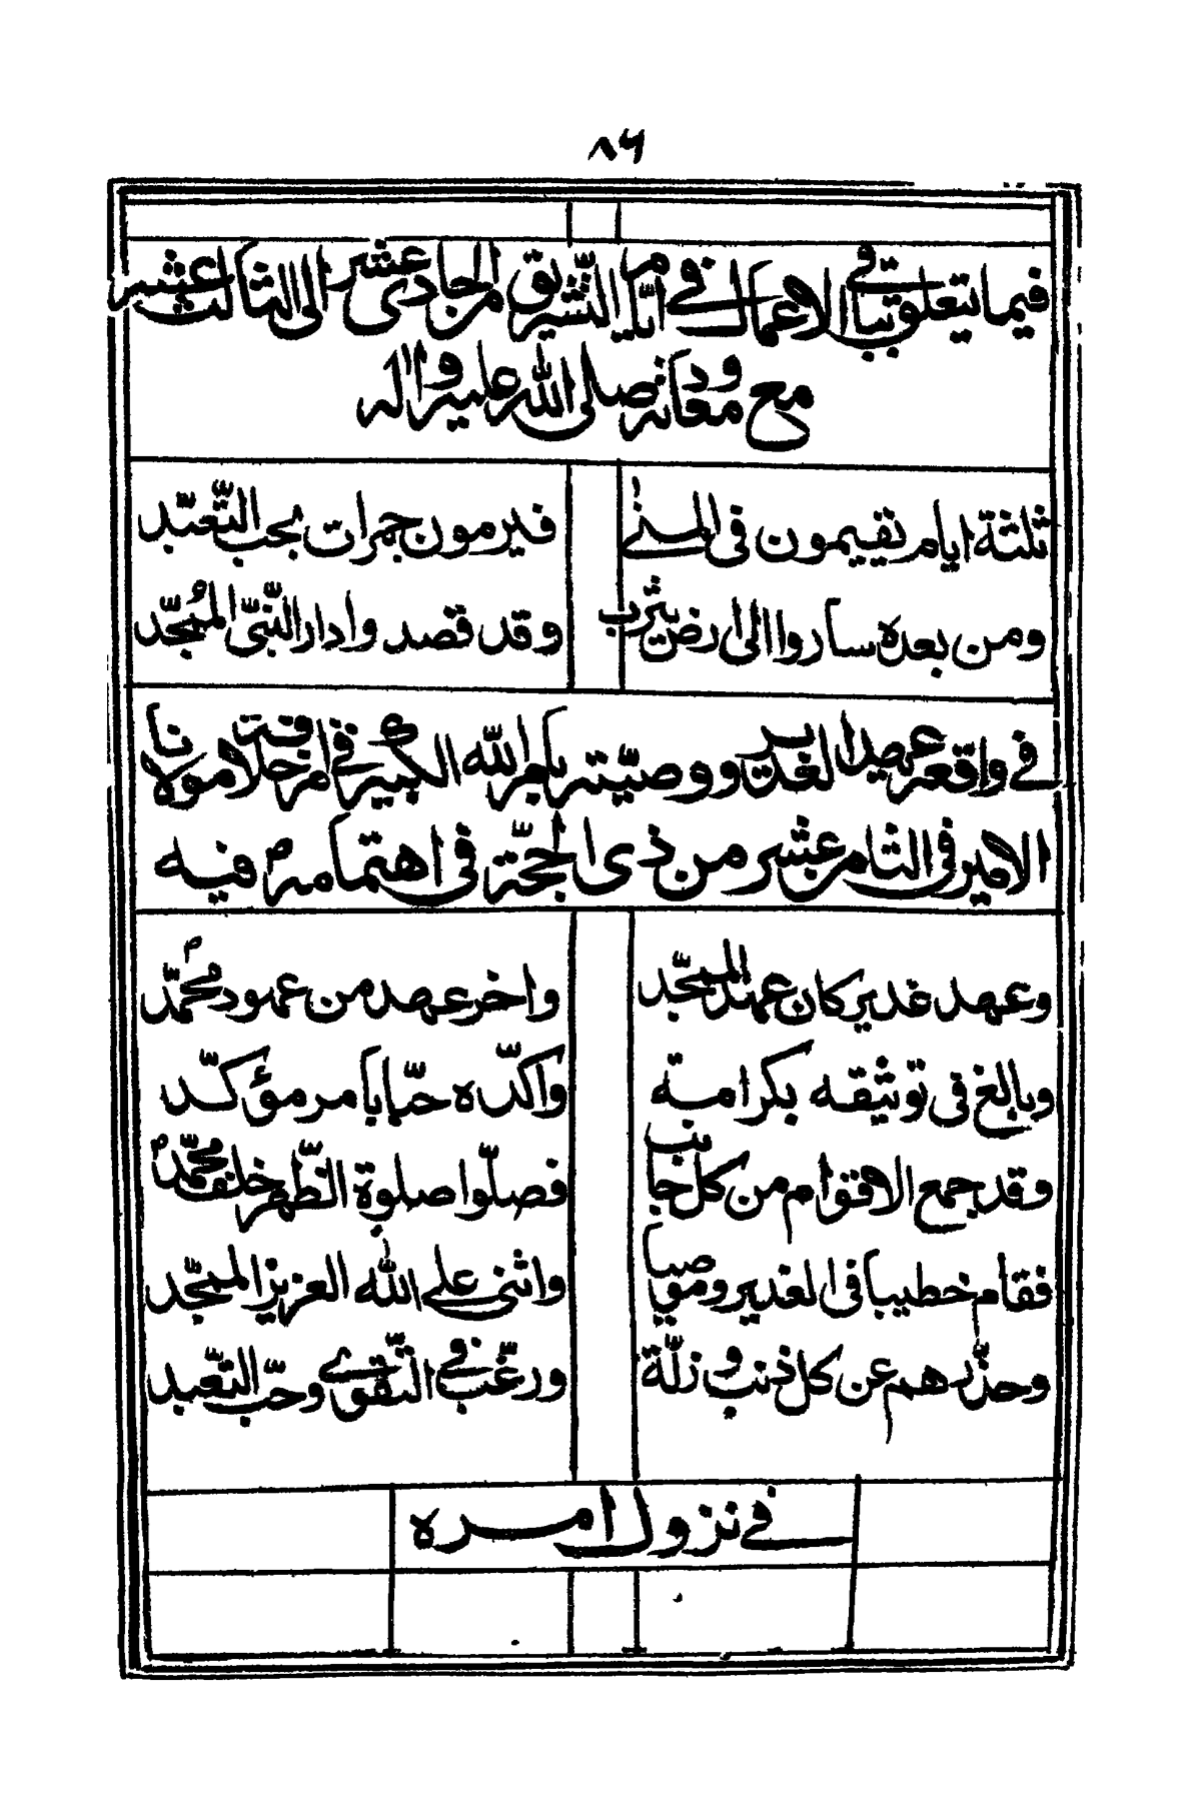 ٨٦
فيما يتعلق بباقي الاعمال في ايام التشريق من الحادى عشر الى الثالث عشر
مع ودعانه صلى الله عليه واله
ثلثة ايام يقيمون فى المنى فيرمون جمرات بحب التعبد
ومن بعده ساروا الى ارض يثرب وقد قصدوا دار النبى الممجد
في واقعة عهد الغدير ووصيته بامر الله الكبير في امر خلافة مولانا
الامير فى الثامن عشر من ذى الحجة فى اهتمامه ص فيه
وعهد غدير كان عهد الممجد واخر عهد من عهود محمد ص
وبالغ فى توثيقه بكرامة واكده حبا بامر مؤكد
وقد جمع الاقوام من كل جانب فصلوا صلوة الظهر خلف محمد ص
فقام خطيبا فى الغدير وموصيا واثنى على الله العزيز الممجد
وحذرهم عن كل ذنب وزلة ورغب في التقوى وحب التعبد
في نزول امره